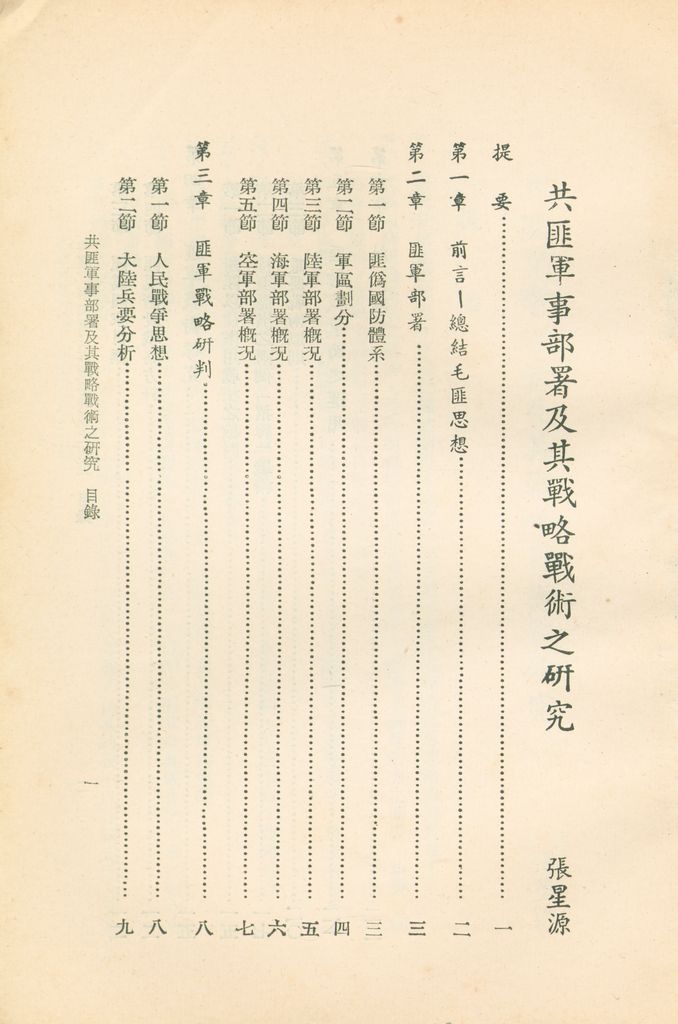 共匪軍事部署及其戰略戰術之研究 張星源
提要……一
第一章 前言—總結毛匪思想……二
第二章 匪軍部署……三
第一節 匪僞國防體系……三
第二節 軍區劃分……四
第三節 陸軍部署概況……五
第四節 海軍部署概況……六
第五節 空軍部署概況……七
第三章 匪軍戰略研判……八
第一節 人民戰爭思想……八
第二節 大陸兵要分析……九
共匪軍事部署及其戰略戰術之研究 目錄 一